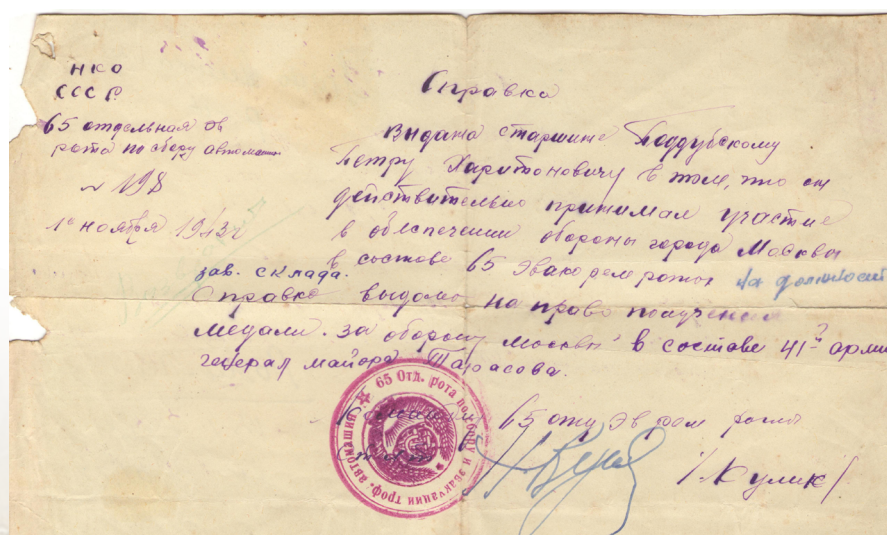 НКО
СССР
65 отдельная
рота по сбору автомашин
№ 198
1го ноября 1943г
Справка
Выдана старшине Поддубскому
Петру Харитоновичу в том, что он
действительно принимал участие
в обеспечении обороны города Москвы
в составе 65 Эвакоремроты на должности
зав. склада.
Справка выдана на право получения
медали. за оборону Москвы в составе 41й арми
генерал майора Тарасова.
65 отд эв рем роты
/Кулик/
65 Отд. рота по сбору и эвакуации троф. автомашин